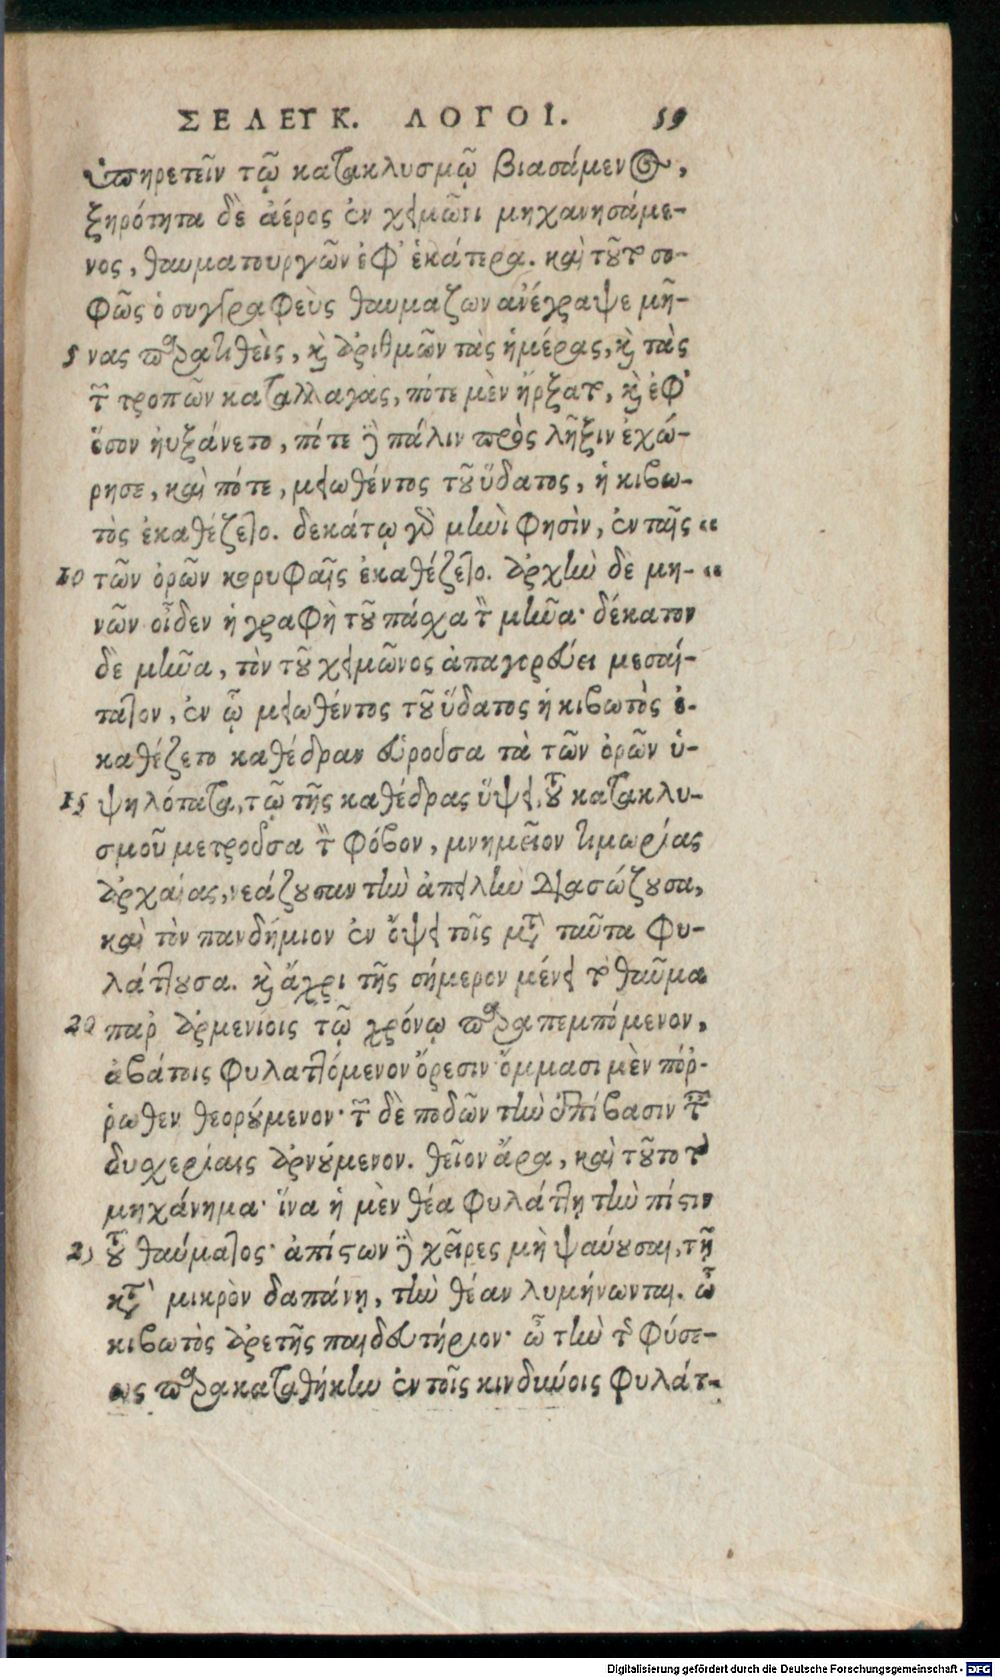 ΣΕΛΕΥΚ. ΛΟΓΟΙ. 59
ὑπηρετεῖν τῷ κατακλυσμῷ βιασάμενος,
ξηρότητα δὲ ἀέρος ἐν χειμῶνι μηχανησάμε-
νος, θαυματουργῶν ἐφ' ἑκάτερα. καὶ τοῦτο σο-
φῶς ὁ συγγραφεὺς θαυμαζων ἀνέγραψε μῆ-
5 νας παρατιθεὶς, καὶ ἀριθμῶν τὰς ἡμέρας, καὶ τὰς
τῶν τροπῶν καταλλαγὰς, πότε μὲν ἤρξατο, καὶ ἐφ'
ὅσον ηὐξάνετο, πότε δὲ πάλιν πρὸς λῆξιν ἐχώ-
ρησε, καὶ πότε, μειωθέντος τοῦ ὕδατος, ἡ κιβω-
τὸς ἐκαθέζετο. δεκάτῳ γὰρ μηνὶ φησὶν, ἐν ταῖς “
10 τῶν ὀρῶν κορυφαῖς ἐκαθέζετο. ἀρχὴν δὲ μη- “
νῶν οἶδεν ἡ γραφὴ τοῦ πάσχα τὸν μῆνα· δέκατον
δὲ μῆνα, τὸν τοῦ χειμῶνος ἀπαγορεύει μεσαί-
τατον, ἐν ᾧ μειωθέντος τοῦ ὕδατος ἡ κιβωτὸς ἐ-
καθέζετο καθέδραν εὑροῦσα τὰ τῶν ὀρῶν ὑ-
15 ψηλότατα, τῷ τῆς καθέδρας ὕψει, τοῦ κατακλυ-
σμοῦ μετροῦσα τὸν φόβον, μνημεῖον τιμωρίας
ἀρχαίας, νεάζουσαν τὴν ἀπειλὴν διασώζουσα,
καὶ τὸν πανδήμιον ἐν ὄψει τοῖς μετὰ ταῦτα φυ-
λάττουσα. καὶ ἄχρι τῆς σήμερον μένει τὸ θαῦμα
20 παρ' ἀρμενίοις τῷ χρόνῳ παραπεμπόμενον,
ἀβάτοις φυλαττόμενον ὄρεσιν· ὄμμασι μὲν πόρ-
ρωθεν θεορούμενον· τῶν δὲ ποδῶν τὴν ἐπίβασιν ταῖς
δυχερίαις ἀρνούμενον. θεῖον ἄρα, καὶ τοῦτο τὸ
μηχάνημα· ἵνα ἡ μὲν θέα φυλάττῃ τὴν πίστιν
25 τοῦ θαύματος· ἀπίστων δὲ χεῖρες μὴ ψαύουσαι, τῇ
κατὰ μικρὸν δαπάνῃ, τὴν θέαν λυμήνωνται. ὢ
κιβωτὸς ἀρετῆς παιδευτήριον· ὢ τὴν τῆς φύσε-
ως παρακαταθήκην ἐν τοῖς κινδύνοις φυλάτ-
Digitalisierung gefördert durch die Deutsche Forschungsgemeinschaft - DFG